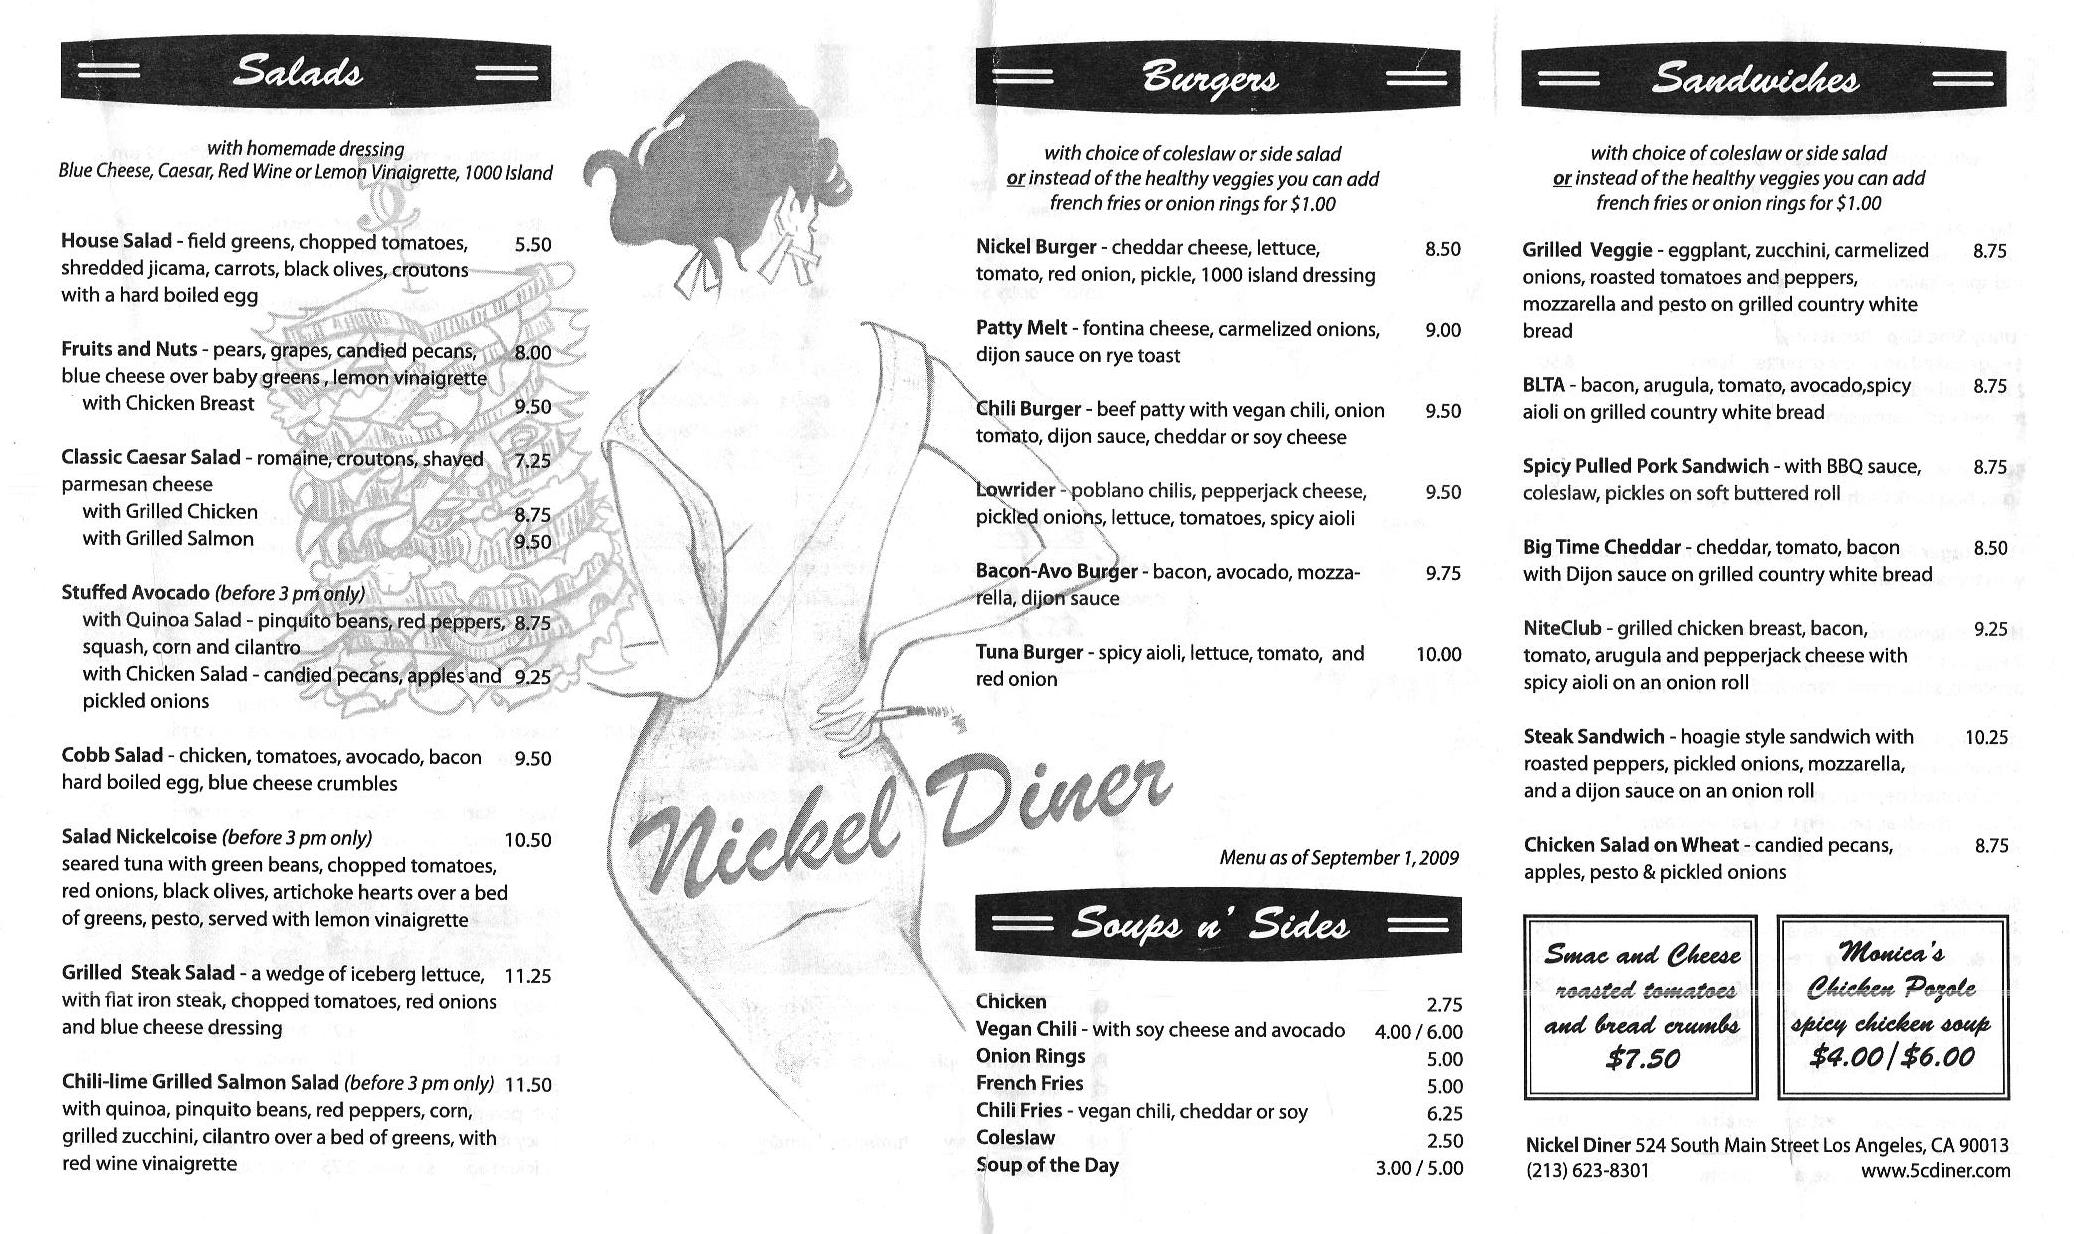 Salads
with homemade dressing
Blue Cheese, Caesar, Red Wine or Lemon Vinaigrette, 1000 Island
House Salad - field greens, chopped tomatoes, 5.50
shredded jicama, carrots, black olives, croutons
with a hard boiled egg
Fruits and Nuts - pears, grapes, candied pecans, 8.00
blue cheese over baby greens , lemon vinaigrette
with Chicken Breast 9.50
Classic Caesar Salad - romaine, croutons, shaved 7.25
parmesan cheese
with Grilled Chicken 8.75
with Grilled Salmon 9.50
Stuffed Avocado (before 3 pm only)
with Quinoa Salad - pinquito beans, red peppers, 8.75
squash, corn and cilantro
with Chicken Salad - candied pecans, apples and 9.25
pickled onions
Cobb Salad - chicken, tomatoes, avocado, bacon 9.50
hard boiled egg, blue cheese crumbles
Salad Nickelcoise (before 3 pm only) 10.50
seared tuna with green beans, chopped tomatoes,
red onions, black olives, artichoke hearts over a bed
of greens, pesto, served with lemon vinaigrette
Grilled Steak Salad - a wedge of iceberg lettuce, 11.25
with flat iron steak, chopped tomatoes, red onions
and blue cheese dressing
Chili-lime Grilled Salmon Salad (before 3 pm only) 11.50
with quinoa, pinquito beans, red peppers, corn,
grilled zucchini, cilantro over a bed of greens, with
red wine vinaigrette
Nickel Diner
Burgers
with choice of coleslaw or side salad
or instead of the healthy veggies you can add
french fries or onion rings for $1.00
Nickel Burger - cheddar cheese, lettuce, 8.50
tomato, red onion, pickle, 1000 island dressing
Patty Melt - fontina cheese, carmelized onions, 9.00
dijon sauce on rye toast
Chili Burger - beef patty with vegan chili, onion 9.50
tomato, dijon sauce, cheddar or soy cheese
Lowrider - poblano chilis, pepperjack cheese, 9.50
pickled onions, lettuce, tomatoes, spicy aioli
Bacon-Avo Burger - bacon, avocado, mozza- 9.75
rella, dijon sauce
Tuna Burger - spicy aioli, lettuce, tomato, and 10.00
red onion
Menu as of September 1, 2009
Soups n' Sides
Chicken 2.75
Vegan Chili - with soy cheese and avocado 4.00 / 6.00
Onion Rings 5.00
French Fries 5.00
Chili Fries - vegan chili, cheddar or soy 6.25
Coleslaw 2.50
Soup of the Day 3.00 / 5.00
Sandwiches
with choice of coleslaw or side salad
or instead of the healthy veggies you can add
french fries or onion rings for $1.00
Grilled Veggie - eggplant, zucchini, carmelized 8.75
onions, roasted tomatoes and peppers,
mozzarella and pesto on grilled country white
bread
BLTA - bacon, arugula, tomato, avocado,spicy 8.75
aioli on grilled country white bread
Spicy Pulled Pork Sandwich - with BBQ sauce, 8.75
coleslaw, pickles on soft buttered roll
Big Time Cheddar - cheddar, tomato, bacon 8.50
with Dijon sauce on grilled country white bread
NiteClub - grilled chicken breast, bacon, 9.25
tomato, arugula and pepperjack cheese with
spicy aioli on an onion roll
Steak Sandwich - hoagie style sandwich with 10.25
roasted peppers, pickled onions, mozzarella,
and a dijon sauce on an onion roll
Chicken Salad on Wheat - candied pecans, 8.75
apples, pesto & pickled onions
Smac and Cheese
roasted tomatoes
and bread crumbs
$7.50
Monica's
Chicken Pozole
spicy chicken soup
$4.00/$6.00
Nickel Diner 524 South Main Street Los Angeles, CA 90013
(213) 623-8301 www.5cdiner.com